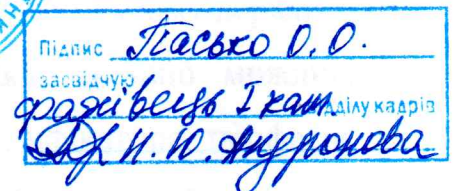 Підпис Пасько О.О.
засвідчую
фахівець І кат. відділу кадрів
Н.Ю. Андронова